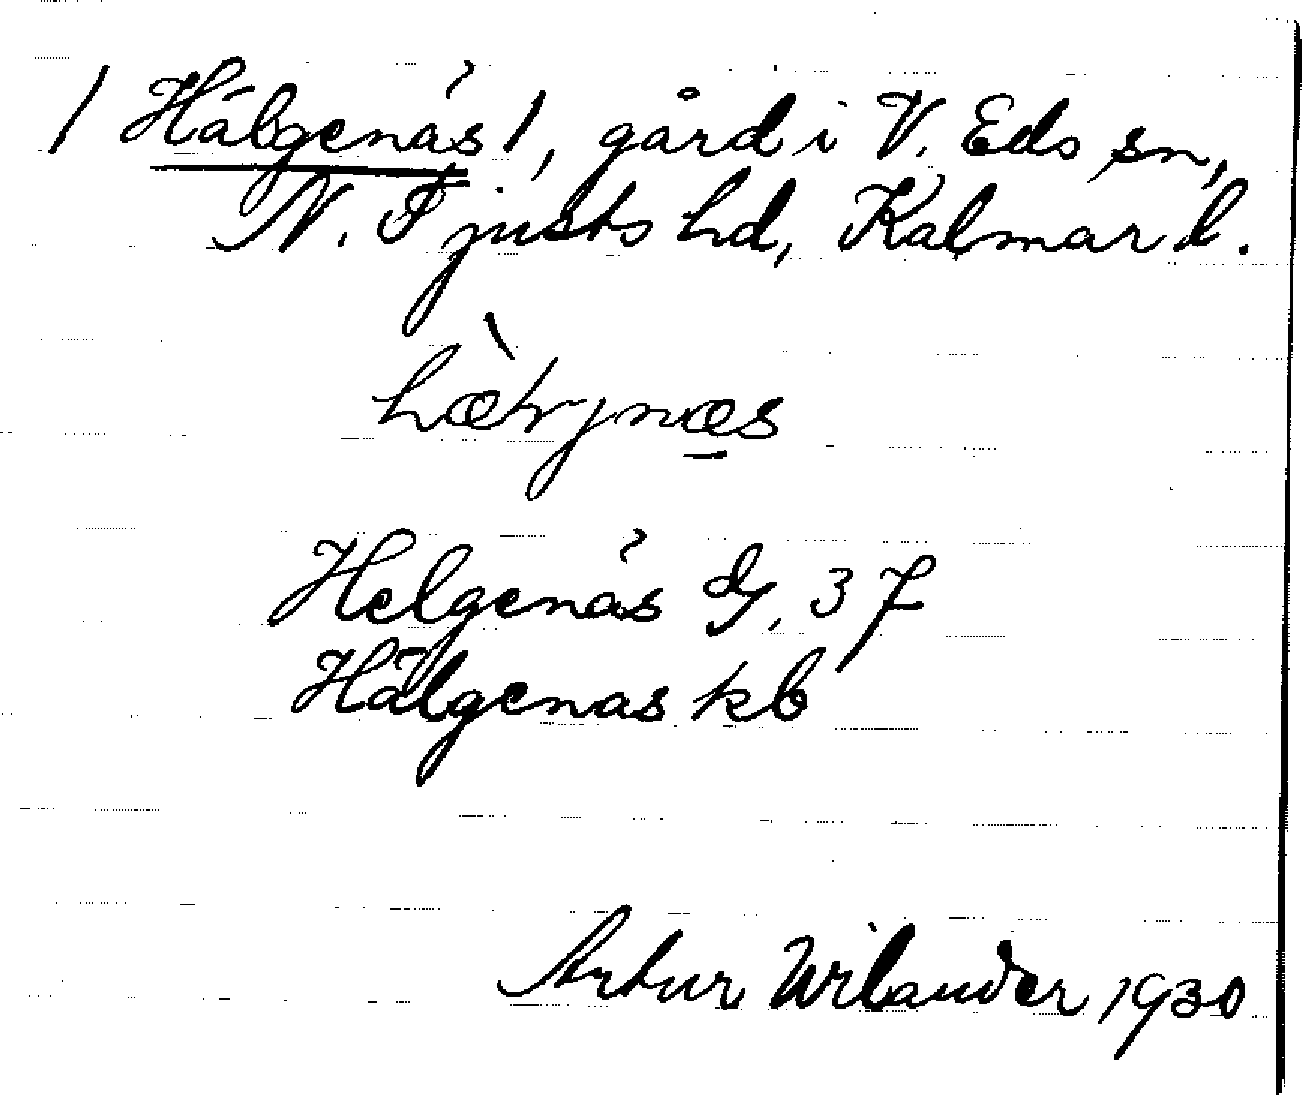 / Hälgenäs /, gård i V. Eds sn,
N. Tjusts hd, Kalmar l.
Helgenäs G. 37
Hälgenäs kb
Artur Wilander 1930